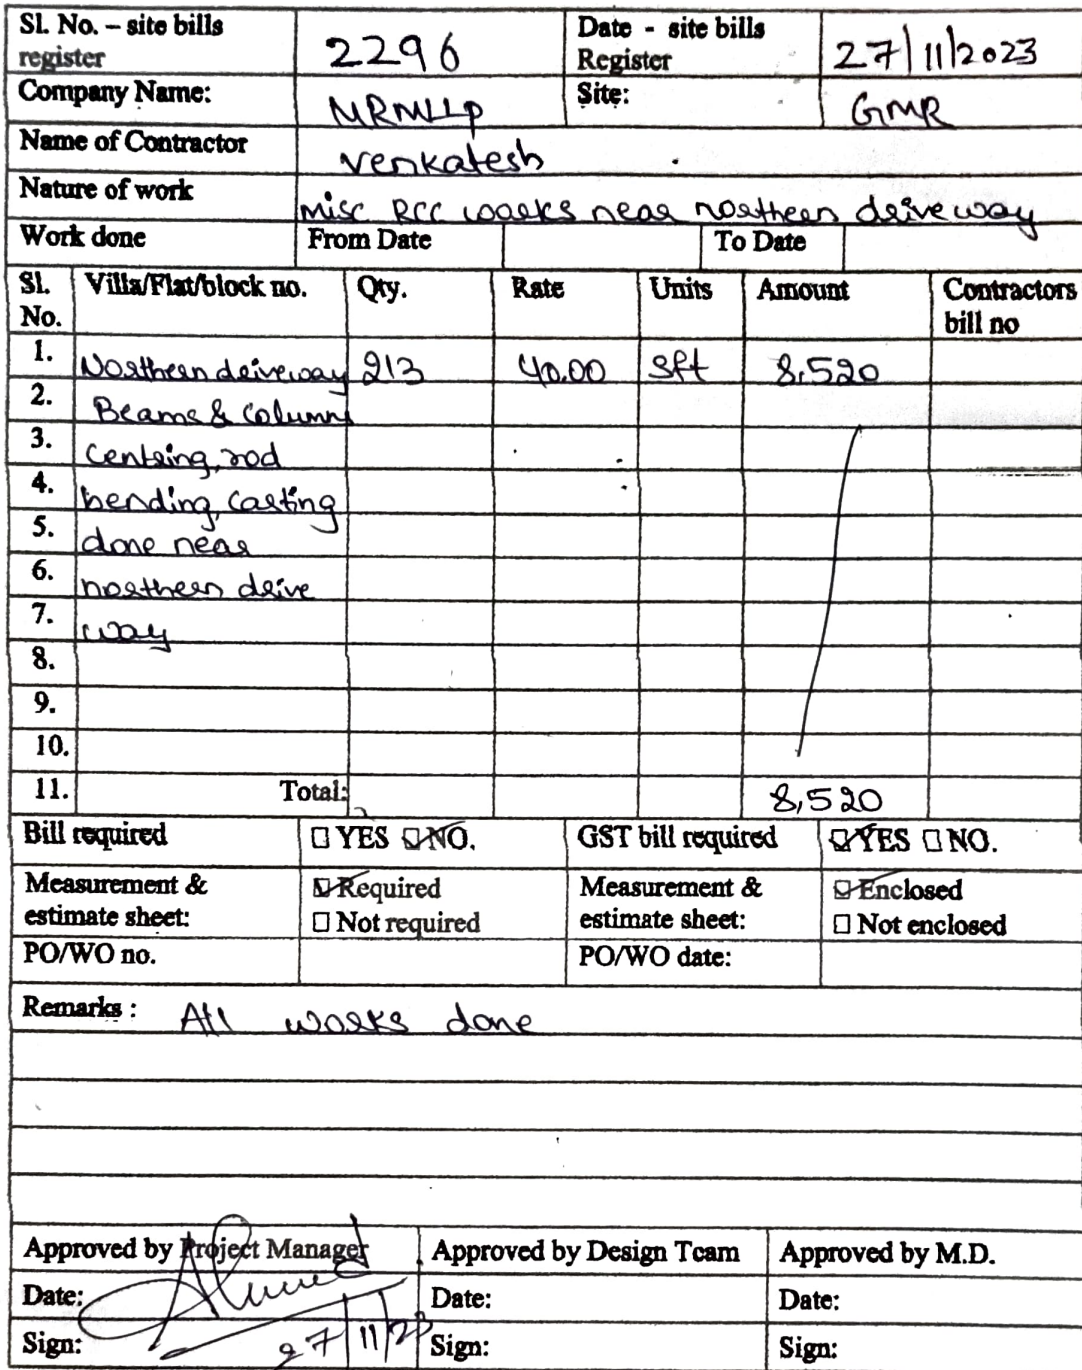 Sl. No. – site bills register 2296 Date - site bills Register 27/11/2023
Company Name: MRMLLP Site: GMR
Name of Contractor Venkatesh
Nature of work misc RCC works near northern driveway
Work done From Date To Date
Sl. No. Villa/Flat/block no. Qty. Rate Units Amount Contractors bill no
1. Northern driveway 213 40.00 sft 8,520
2. Beams & columns
3. Centring, rod
4. bending, casting
5. done near
6. northern drive
7. way
8.
9.
10.
11. Total: 8,520
Bill required ☐ YES ☑ NO. GST bill required ☑ YES ☐ NO.
Measurement & estimate sheet: ☑ Required ☐ Not required Measurement & estimate sheet: ☑ Enclosed ☐ Not enclosed
PO/WO no. PO/WO date:
Remarks : All works done
Approved by Project Manager Approved by Design Team Approved by M.D.
Date: Date: Date:
Sign: 27/11/23 Sign: Sign: